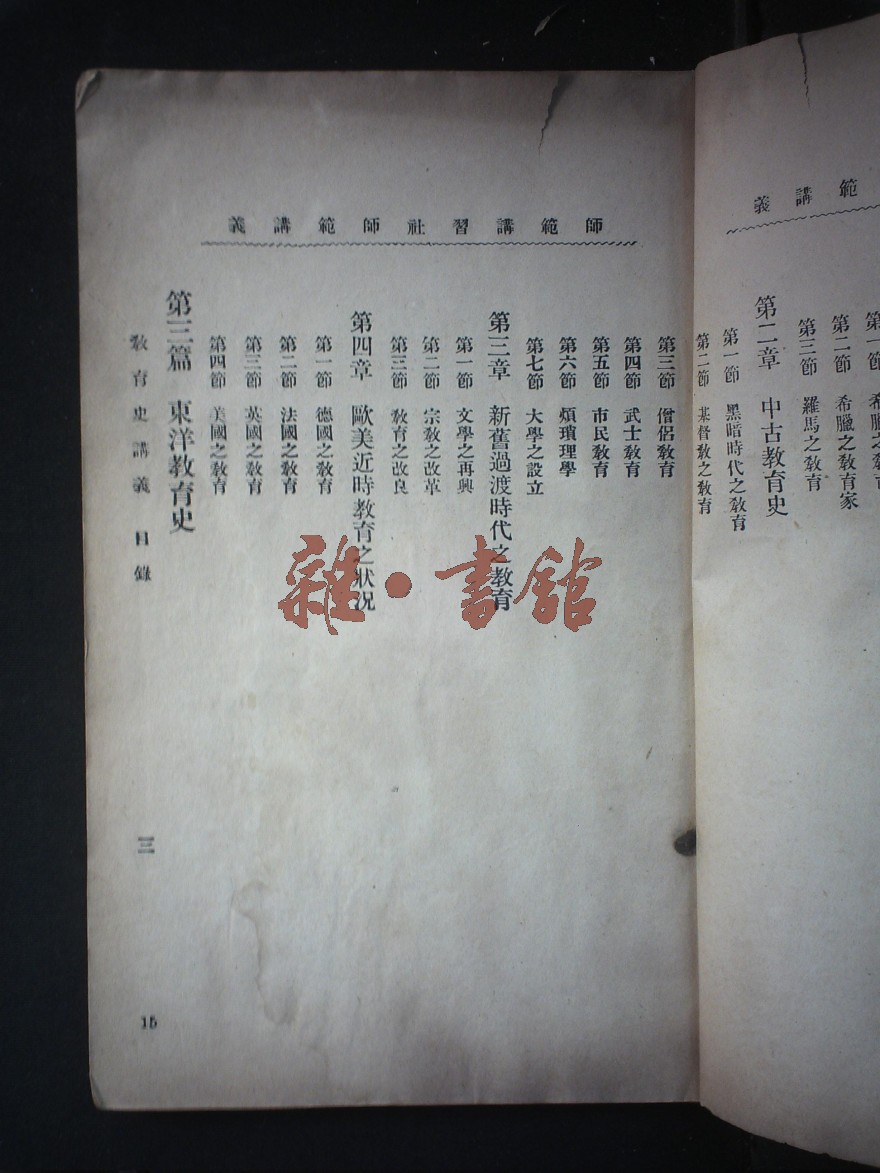 範講義
第一節 希臘之教育
第二節 希臘之教育家
第三節 羅馬之教育
第二章 中古教育史
第一節 黑暗時代之教育
第二節 基督教之教育
師範講習社師範講義
第三節 僧侶教育
第四節 武士教育
第五節 市民教育
第六節 煩瑣理學
第七節 大學之設立
第三章 新舊過渡時代之教育
第一節 文學之再興
第二節 宗教之改革
第三節 教育之改良
第四章 歐美近時教育之狀況
第一節 德國之教育
第二節 法國之教育
第三節 英國之教育
第四節 美國之教育
第三篇 東洋教育史
教育史講義 目錄
三
15
雜·書館